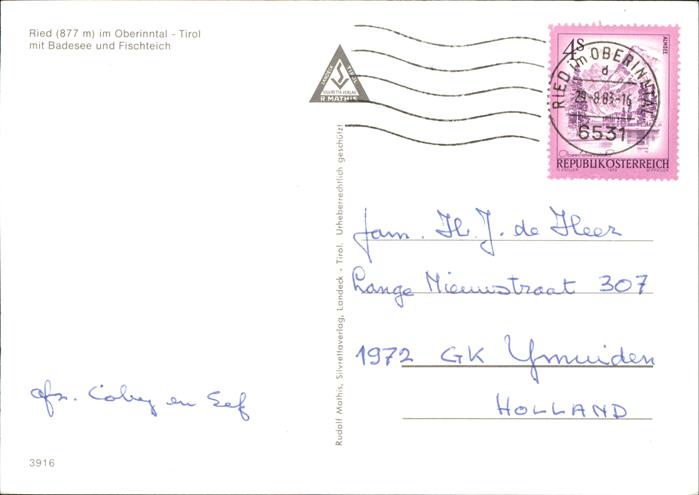 Ried (877 m) im Oberinntal - Tirol
mit Badesee und Fischteich
R. MATHIS
4S
ALMSEE
RIED im OBERINNTAL
d
29.-8.83-16
6531
REPUBLIK ÖSTERREICH
Fam. H. J. de Heer
Lange Nieuwstraat 307
1972 GK Ymuiden
HOLLAND
afz. Coby en Sef
Rudolf Mathis, Silvrettaverlag, Landeck - Tirol. Urheberrechtlich geschützt!
3916